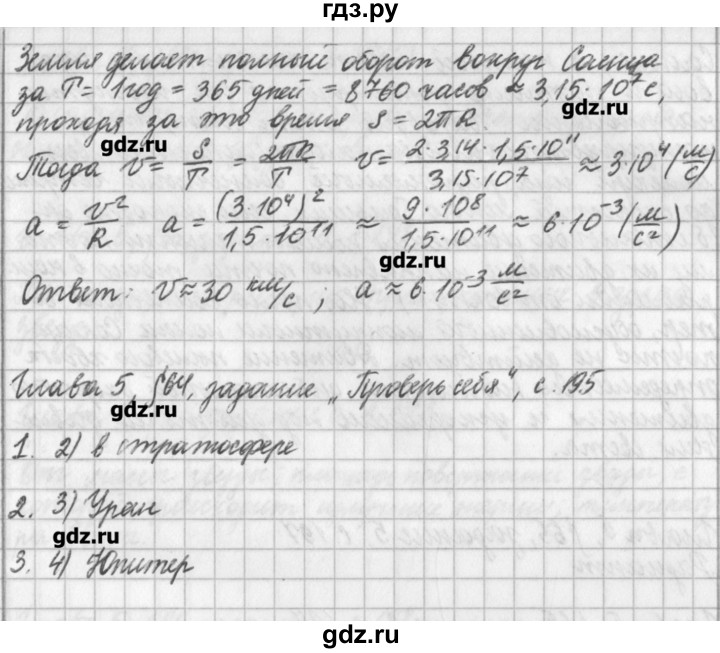 гдз.ру
Земля делает полный оборот вокруг Солнца
за T = 1 год = 365 дней = 8760 часов ≈ 3,15·10⁷ с,
gdz.ru
проходя за это время s = 2πR.
gdz.ru
Тогда v = s/T = 2πR/T v = 2·3,14·1,5·10¹¹/3,15·10⁷ ≈ 3·10⁴ (м/с)
a = v²/R a = (3·10⁴)²/1,5·10¹¹ ≈ 9·10⁸/1,5·10¹¹ ≈ 6·10⁻³ (м/с²)
gdz.ru
Ответ: v ≈ 30 км/с ; a ≈ 6·10⁻³ м/с²
Глава 5, §64, задание „Проверь себя", с. 195
gdz.ru
1. 2) в стратосфере
2. 3) Уран
gdz.ru
3. 4) Юпитер
gdz.ru